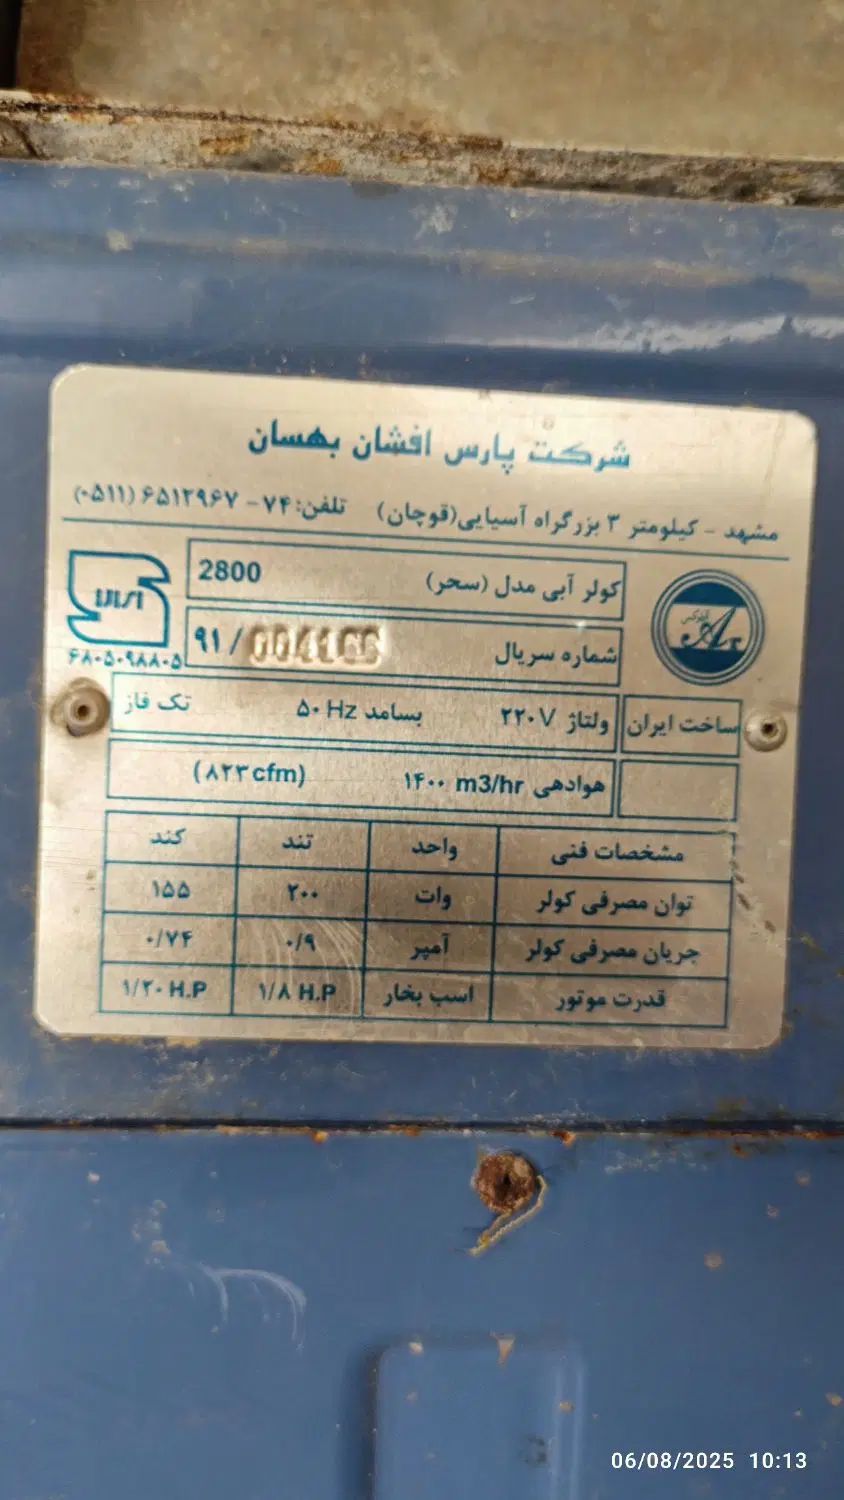 شرکت پارس افشان بهسان
مشهد - کیلومتر ۳ بزرگراه آسیایی(قوچان) تلفن: ۷۴ - ۶۵۱۲۹۶۷ (۰۵۱۱)
کولر آبی مدل (سحر) 2800
شماره سریال ۹۱/ 004166
۶۸۰۵۰۹۸۸۰۵
ساخت ایران ولتاژ ۲۲۰V بسامد ۵۰ Hz تک فاز
هوادهی ۱۴۰۰ m3/hr (۸۲۳ cfm)
مشخصات فنی واحد تند کند
توان مصرفی کولر وات ۲۰۰ ۱۵۵
جریان مصرفی کولر آمپر ۰/۹ ۰/۷۴
قدرت موتور اسب بخار ۱/۸ H.P ۱/۲۰ H.P
06/08/2025 10:13